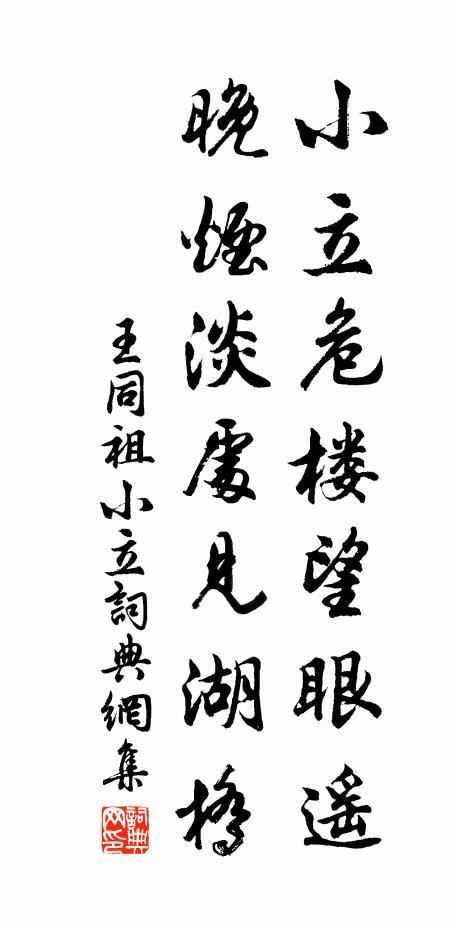 小立危楼望眼遥
晚煙淡處見湖橋
王同祖小立詞典網集
詞典网印